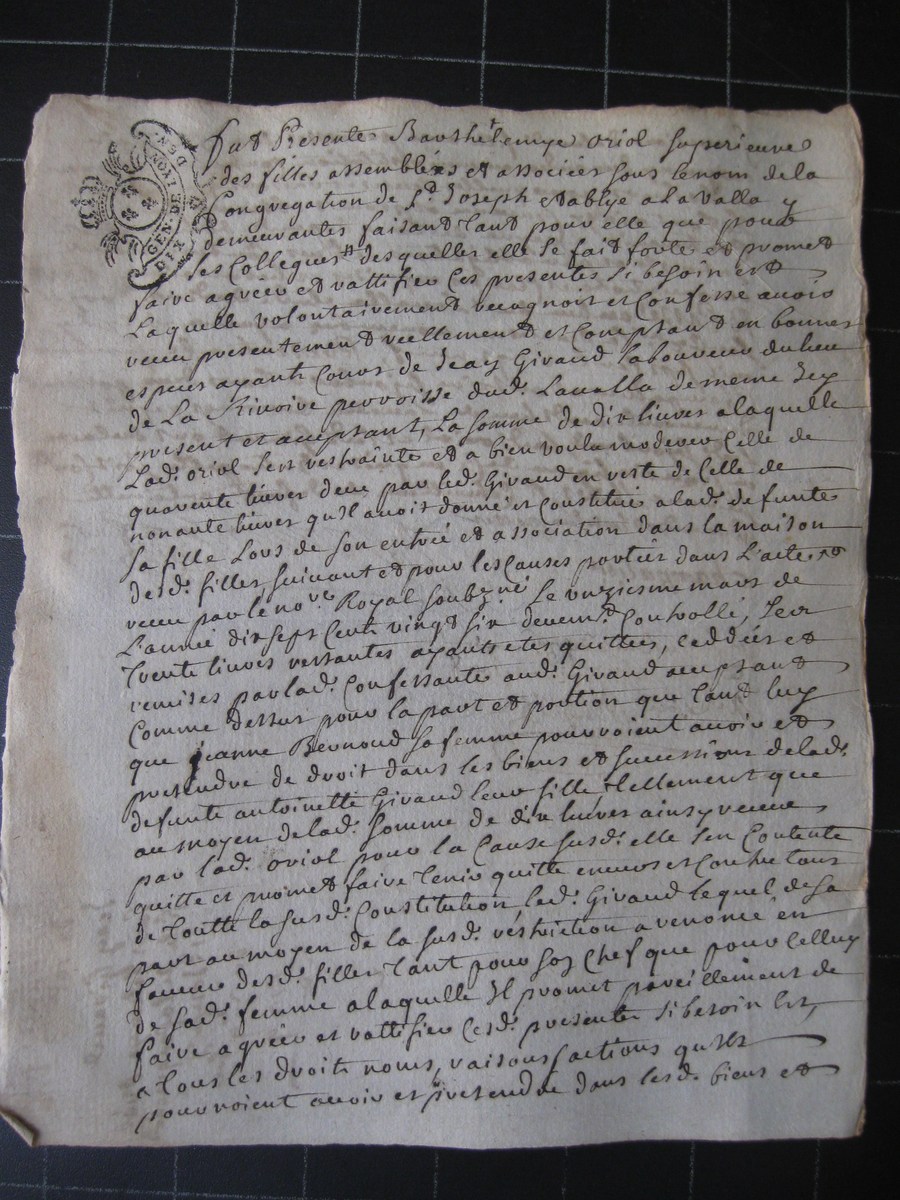 GEN. DE LYON
DIX DEN.
fut Presente Barthelemye oriol superieure
des filles assemblees et associées sous le nom de la
Congregation de St. Joseph Etablye a La Valla y
demeurantes faisant tant pour elle que pour
ses Collegues desquelles elle se fait forte et promet
faire agréer et rattifier Ces presentes si besoin est
Laquelle volontairement recognoit et Confesse avoir
receu presentement reellement et Comptant en bonnes
especes ayants Cours de Jean Giraud laboureur du lieu
de La Rivoire parroisse dud. Lavalla de meme Icy
present et acceptant, La somme de dix livres a laquelle
Lad. oriol s'est restrainte et a bien voulu moderer Celle de
quarente livres deue par led. Giraud en reste de Celle de
nonante livres qu'Il avoit donné et Constitué a lad. defunte
sa fille Lors de son entrée et association dans la maison
desd. filles suivant et pour les causes portées dans L'acte
receu par le no.re Royal soubzné le unziesme mars de
L'année dix sept Cent vingt six deuem.t Controllé, Les
Trente livres restantes ayants etes quittées, Ceddées et
remises par lad. Confessante aud. Giraud acceptant
Comme dessus pour la part et portion que tant luy
que Jeanne Bernoud sa femme pourroient avoir et
pretendre de droit dans les biens et successions de lad.
defunte antoinette Giraud leur fille tellement que
au moyen de lad. somme de dix livres ainsy receue
par lad. oriol pour la Cause susd. elle s'en Contente
quitte et promet faire tenir quitte envers et Contre tous
de toutte la susd. Constitution led. Giraud lequel de sa
part au moyen de la susd. réstriction a renoncé en
faveur desd. filles tant pour son Chef que pour Celluy
de sad. femme a laquelle Il promet pareillement de
faire agréer et rattifier Cesd. presentes si besoin est,
a tous les droits noms, raisons, actions qu'Ils
pourroient avoir et pretendre dans lesd. biens et